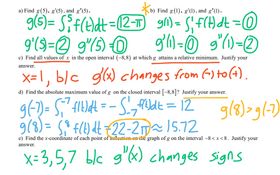 a) Find g(5), g'(5), and g''(5).
g(5) = ∫₁⁵ f(t)dt = 12-π
g'(5) = 2 g''(5) = 0
* b) Find g(1), g'(1), and g''(1).
g(1) = ∫₁¹ f(t)dt = 0
g'(1) = 0 g''(1) = 2
c) Find all values of x in the open interval (-8,8) at which g attains a relative minimum. Justify your
answer.
x=1, b/c g'(x) changes from (-) to (+).
d) Find the absolute maximum value of g on the closed interval [-8,8]. Justify your answer.
g(-7) = ∫₁⁻⁷ f(t)dt = -∫₋₇¹ f(t)dt = 12
g(8) > g(-7)
g(8) = ∫₁⁸ f(t)dt = 22-2π ≈ 15.72
e) Find the x-coordinate of each point of inflection on the graph of g on -8 < x < 8. Justify your
answer.
x=3,5,7 b/c g''(x) changes signs